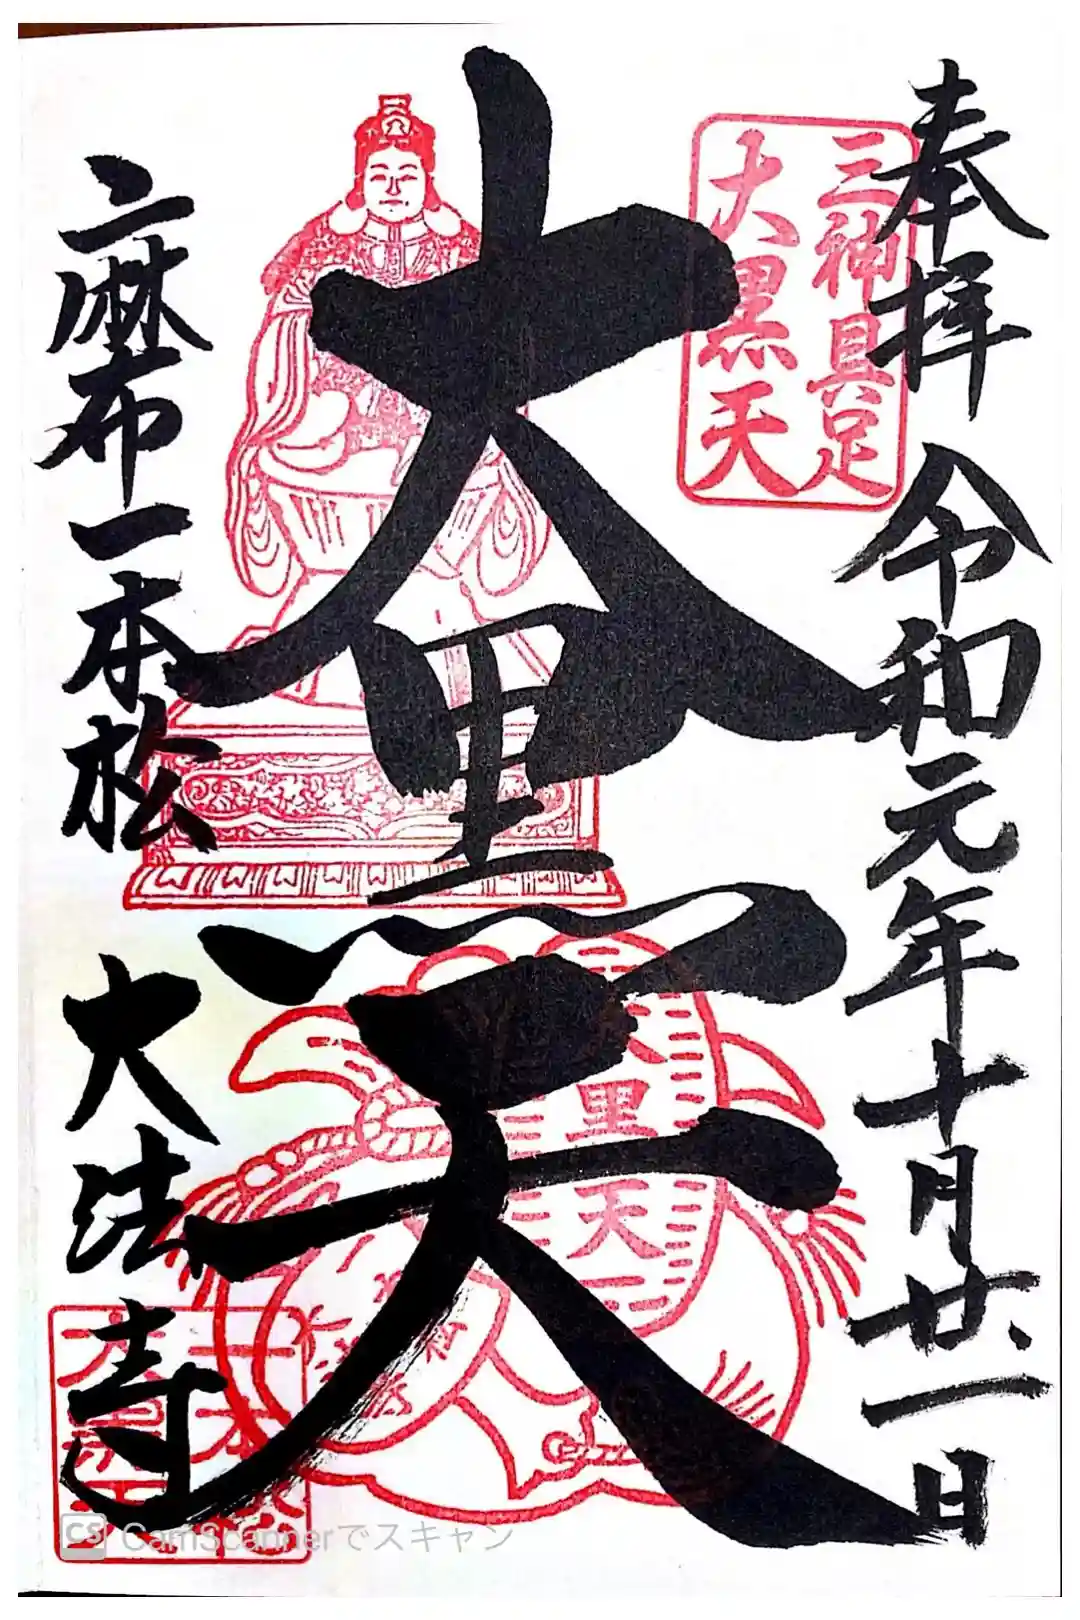 奉拝 令和元年十月廿一日
三神具足
大黒天
大黒天
麻布一本松 大法寺
一本松
大黒天
CS CamScannerでスキャン